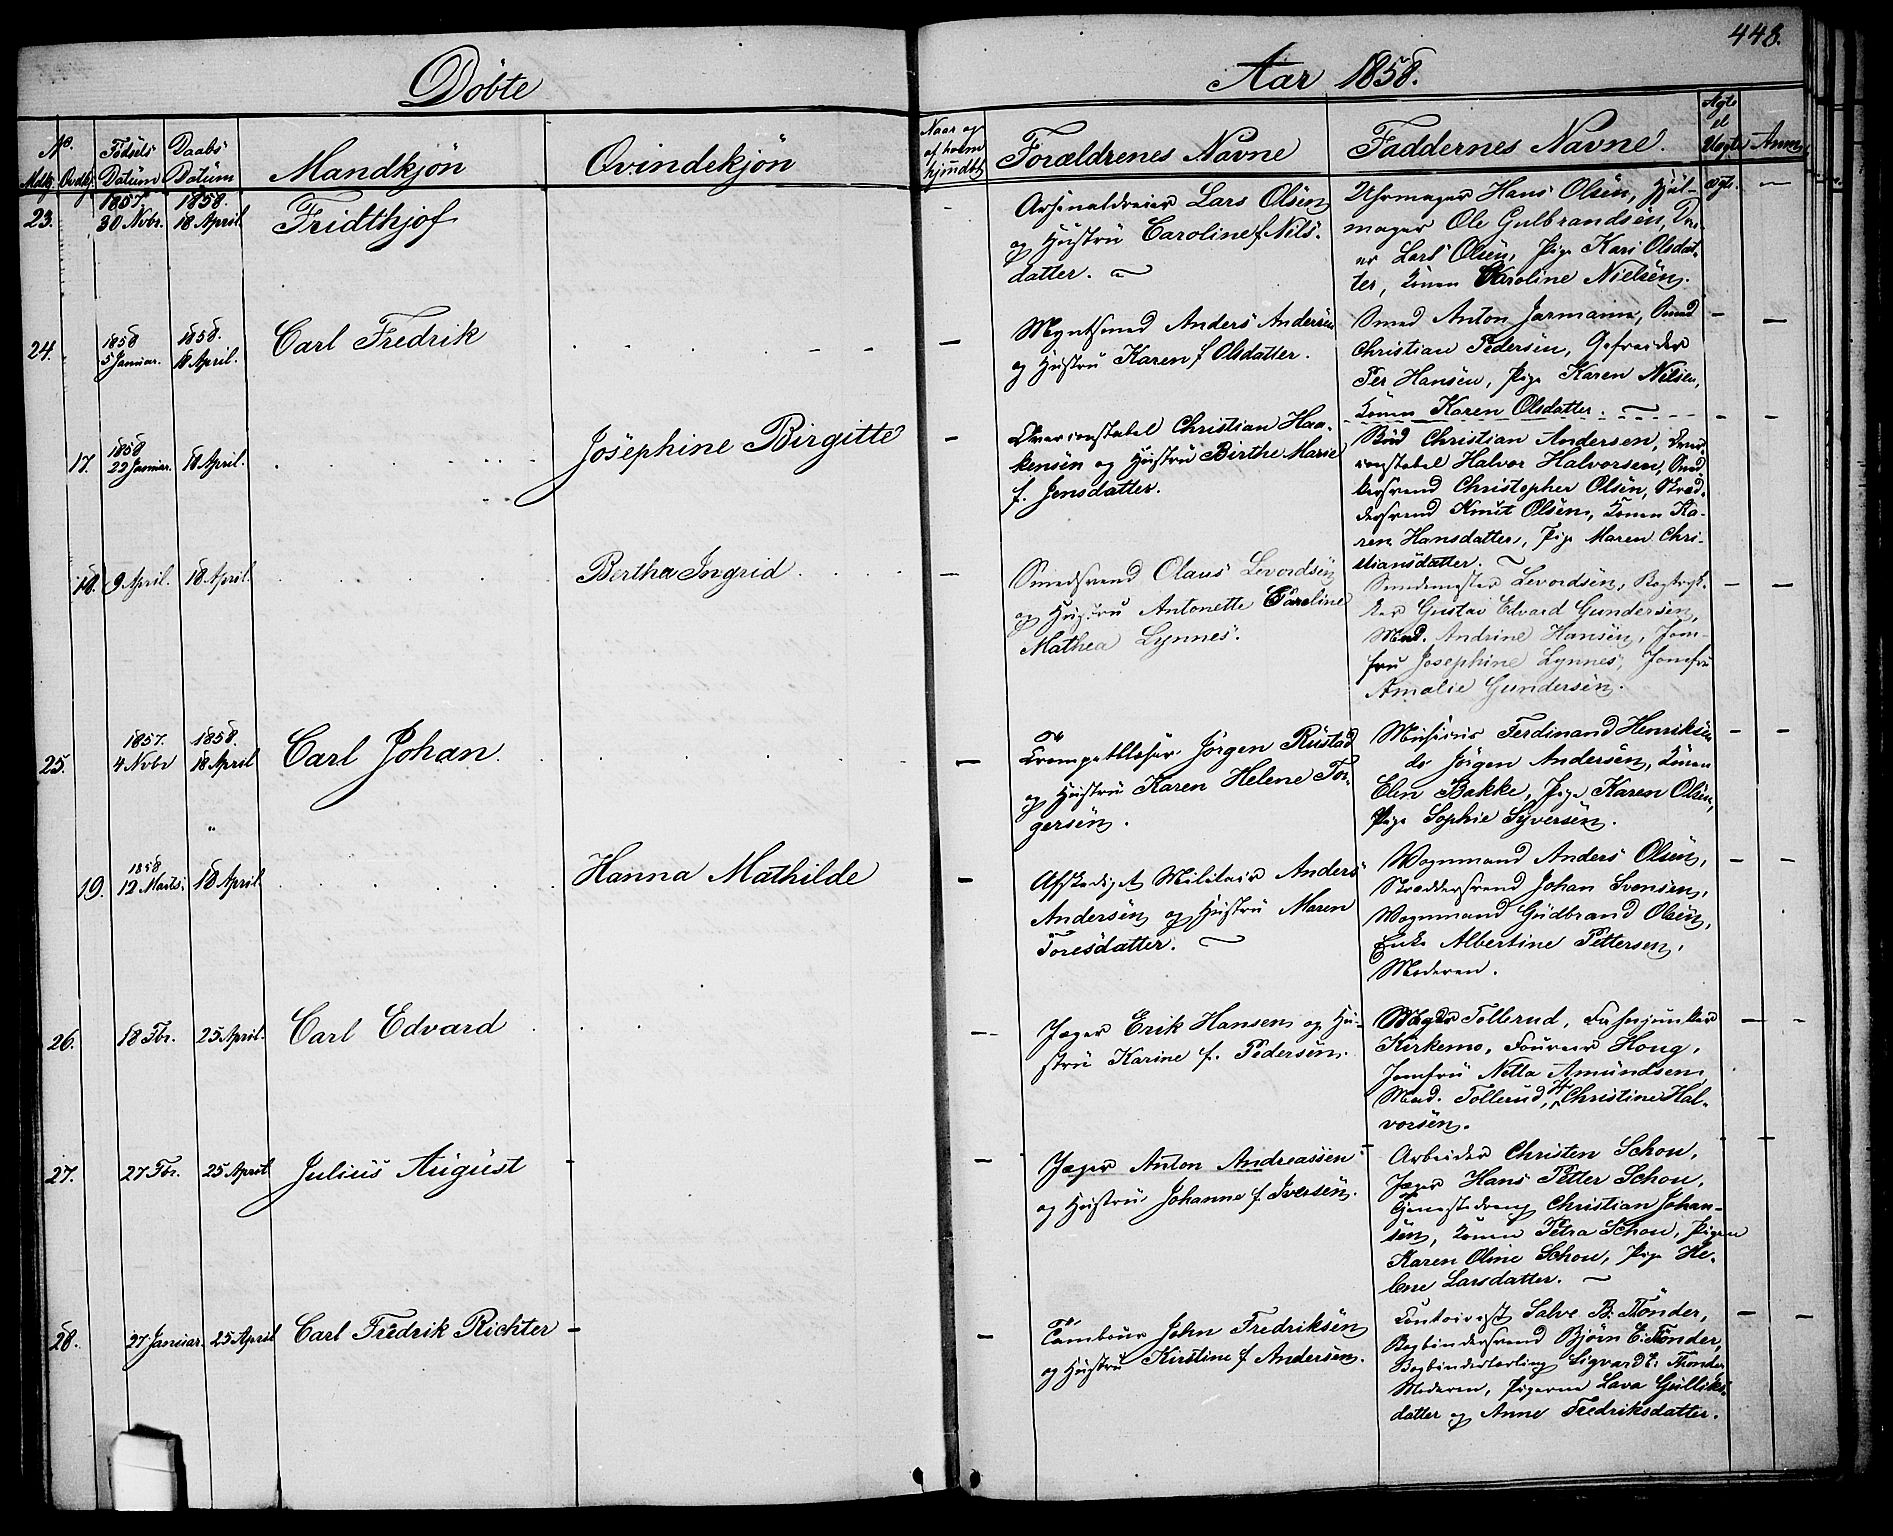 448.
Döbte
Aar 1858.
No.
Mdkj. Qvdkj.
Födsels Datum
Daabs Datum
Mandkjön
Qvindekjön
Naar og af hvem hjemdbt
Forældrenes Navne
Faddernes Navne.
Ægte el Uægte
Anm.
23.
1857. 30 Novbr.
1858. 18 April
Fridthjof
Arsenaldreier Lars Olsen
og Hustru Caroline f. Nils-
datter.
Uhrmager Hans Olsen, Hjul-
mager Ole Gulbrandsen, Drei-
er Lars Olsen, Pige Kari Olsdat-
ter, Konen Karoline Nielsen.
ægte.
24.
1858 5 Januar.
1858. 18 April.
Carl Fredrik
Myntsmed Anders Andersen
og Hustru Karen f. Olsdatter.
Smed Anton Jarmann, Smed
Christian Pedersen, Gefreider
Per Hansen, Pige Karen Nilsen,
Konen Karen Olsdatter.
17.
1858 22 Januar.
18 April.
Josephine Birgitte
Overconstabel Christian Haa-
kensen og Hustru Birthe Marie
f. Jensdatter.
Bud Christian Andersen, Over-
constabel Halvor Halvorsen, Sned-
kersvend Christopher Olsen, Skræd-
dersvend Knut Olsen, Konen Ka-
ren Hansdatter, Pige Maren Chri-
stiansdatter.
18.
9 April.
18 April.
Bertha Ingrid.
Smedsvend Olaus Levordsen
og Hustru Antonette Caroline
Mathea Lynnes.
Smedemester Levordsen, Bogtryk-
ker Gustav Edvard Gundersen,
Mad. Andrine Hansen, Jom-
fru Josephine Lynnes, Jomfru
Amalie Gundersen.
25.
1857. 4 Novbr
1858. 18 April
Carl Johan.
Trompetblæser Jörgen Rustad
og Hustru Karen Helene Tor-
gersen.
Musicus Ferdinand Henriksen
do Jörgen Andersen, Konen
Elen Bakke, Pige Karen Olsen,
Pige Sophie Syversen.
19.
1858 12 Marts.
18 April
Hanna Mathilde
Afskediget Militair Anders
Andersen og Hustru Maren
Toresdatter.
Vognmand Anders Olsen,
Skreddersvend Johan Svensen,
Vognmand Gudbrand Olsen,
Enke Albertine Pettersen,
Moderen.
26.
18 Fbr.
25 April.
Carl Edvard
Jæger Erik Hansen og Hu-
stru Karine f. Pedersen.
Tollerud,
Kirkemo, Fourier Houg,
Jomfru Netta Amundsen,
Mad. Tollerud, Christine Hal-
vorsen.
27.
27 Fbr.
25 April
Julius August
Jæger Anton Andreassen
og Hustru Johanne f. Iversen.
Arbeider Christen Schou,
Jæger Hans Petter Schou,
Tjenestedreng Christian Johan-
sen, Konen Petra Schou, Pigen
Karen Oline Schou, Pige He-
lene Larsdatter.
28.
27 Januar.
25 April
Carl Fredrik Richter
Tambour John Fredriksen
og Hustru Kirstine f. Andersen.
Contorist Salve B. Tönder,
Bogbindersvend Björn E. Tönder,
Bogbinderlærling Sigvard E. Tönder
Moderen, Pigerne Lava Gulliks-
datter og Anne Fredriksdatter.